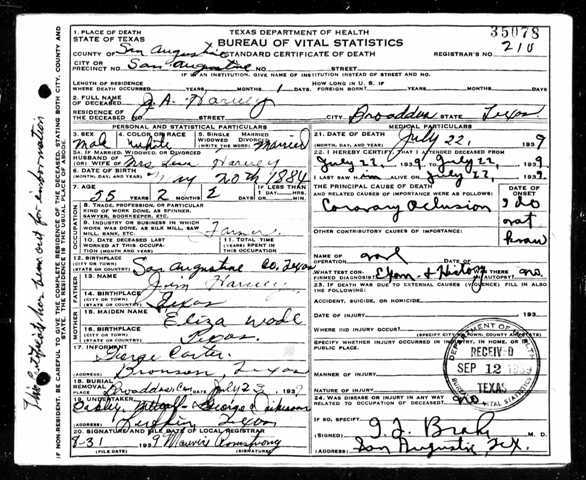 35078
TEXAS DEPARTMENT OF HEALTH
BUREAU OF VITAL STATISTICS
STANDARD CERTIFICATE OF DEATH
REGISTRAR'S NO. 210
1. PLACE OF DEATH
STATE OF TEXAS
COUNTY OF San Augustine
CITY OR PRECINCT NO. San Augustine STREET
IF AN INSTITUTION, GIVE NAME OF INSTITUTION INSTEAD OF STREET AND NO.
LENGTH OF RESIDENCE WHERE DEATH OCCURRED YEARS MONTHS 1 DAYS
HOW LONG IN U. S. IF FOREIGN BORN? YEARS MONTHS DAYS
2. FULL NAME OF DECEASED J. A. Harvey
RESIDENCE OF THE DECEASED STREET AND NO. CITY Broaddus STATE Texas
PERSONAL AND STATISTICAL PARTICULARS
3. SEX Male 4. COLOR OR RACE white 5. SINGLE MARRIED WIDOWED DIVORCED Married
5A. IF MARRIED, WIDOWED OR DIVORCED
HUSBAND OF (OR) WIFE OF Mrs Harvey
6. DATE OF BIRTH (MONTH, DAY, AND YEAR) May 20th 1884
7. AGE 55 YEARS 2 MONTHS 2 DAYS IF LESS THAN 1 DAY HRS. MIN.
OCCUPATION
8. TRADE, PROFESSION, OR PARTICULAR KIND OF WORK DONE, AS SPINNER, SAWYER, BOOKKEEPER, ETC.
9. INDUSTRY OR BUSINESS IN WHICH WORK WAS DONE, AS SILK MILL, SAW MILL, BANK, ETC. Farmer
10. DATE DECEASED LAST WORKED AT THIS OCCUPATION (MONTH AND YEAR)
11. TOTAL YEARS SPENT IN THIS OCCUPATION
12. BIRTHPLACE (CITY OR TOWN) (STATE OR COUNTRY) San Augustine Co. Texas
FATHER
13. NAME Jim Harvey
14. BIRTHPLACE (CITY OR TOWN) (STATE OR COUNTRY) Texas
MOTHER
15. MAIDEN NAME Eliza Wade
16. BIRTHPLACE (CITY OR TOWN) (STATE OR COUNTRY) Texas
17. INFORMANT George Carter
(ADDRESS) Bronson, Texas
18. BURIAL REMOVAL PLACE Broaddus Cem DATE July 23, 1939
19. UNDERTAKER
(ADDRESS) Texas
20. SIGNATURE AND FILE DATE OF LOCAL REGISTRAR
8-31 1939 Armstrong
(FILE DATE) (SIGNATURE)
MEDICAL PARTICULARS
21. DATE OF DEATH July 22, 1939
22. I HEREBY CERTIFY THAT I ATTENDED DECEASED FROM
July 22, 1939, TO July 22, 1939.
I LAST SAW him ALIVE ON July 22, 1939.
THE PRINCIPAL CAUSE OF DEATH AND RELATED CAUSES OF IMPORTANCE WERE AS FOLLOWS:
Coronary Oclusion
DATE OF ONSET
I do not know
OTHER CONTRIBUTORY CAUSES OF IMPORTANCE:
NAME OF OPERATION
WHAT TEST CONFIRMED DIAGNOSIS? Exam & History AUTOPSY? no.
23. IF DEATH WAS DUE TO EXTERNAL CAUSES (VIOLENCE) FILL IN ALSO
ACCIDENT, SUICIDE, OR HOMICIDE.
DATE OF INJURY 193
WHERE DID INJURY OCCUR?
(SPECIFY CITY OR TOWN, COUNTY AND STATE)
SPECIFY WHETHER INJURY OCCURRED IN INDUSTRY, IN HOME, OR PUBLIC PLACE.
MANNER OF INJURY
NATURE OF INJURY
24. WAS DISEASE OR INJURY IN ANY WAY RELATED TO OCCUPATION OF DECEASED? no
IF SO, SPECIFY
(SIGNED) M. D.
(ADDRESS) San Augustine, Tex.
DEPARTMENT OF HEALTH
RECEIVED
SEP 12 1939
TEXAS
BUREAU VITAL STATISTICS